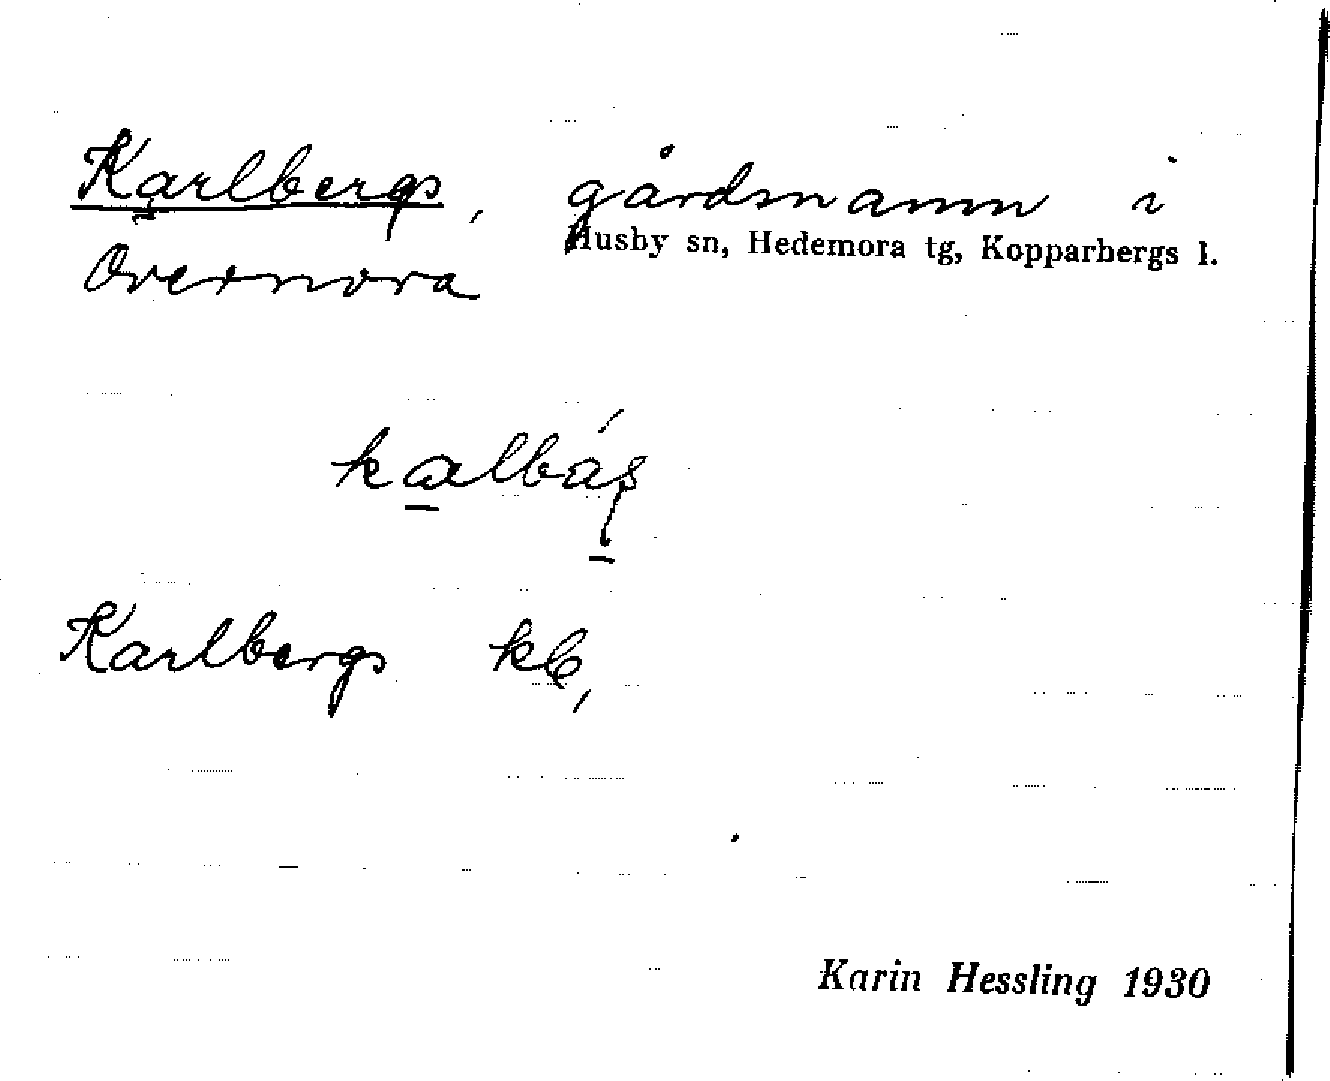 Karlbergs, gårdsnamn i
Husby sn, Hedemora tg, Kopparbergs l.
Overnora
Karlbergs kb,
Karin Hessling 1930